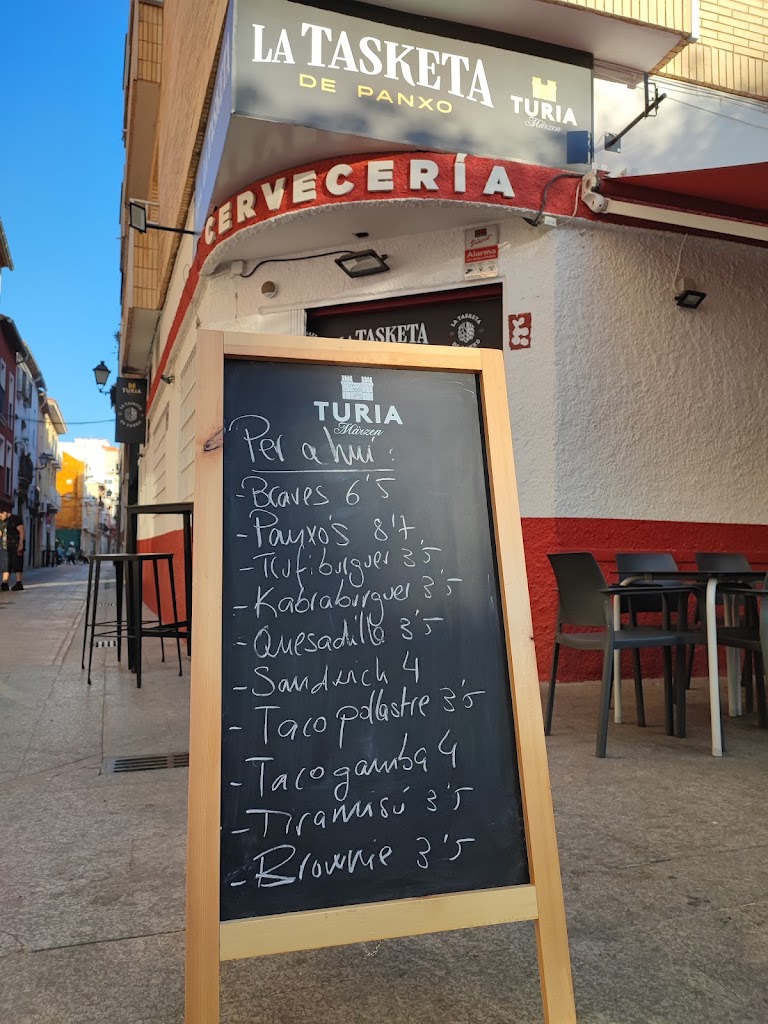 LA TASKETA
DE PANXO
TURIA
Märzen
CERVECERÍA
Alarma
LA TASKETA
LA TASKETA
TURIA
TURIA
Märzen
Per a hui:
- Braves 6'5
- Panxo's 8'7
- Trufiburguer 3'5
- Kabraburguer 3'5
- Quesadilla 3'5
- Sandwich 4
- Taco pollastre 3'5
- Taco gamba 4
- Tiramisú 3'5
- Brownie 3'5